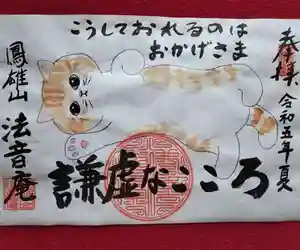 奉拝 令和五年夏
こうしておれるのは
おかげさま
謙虚なこころ
鳳雄山 法音庵